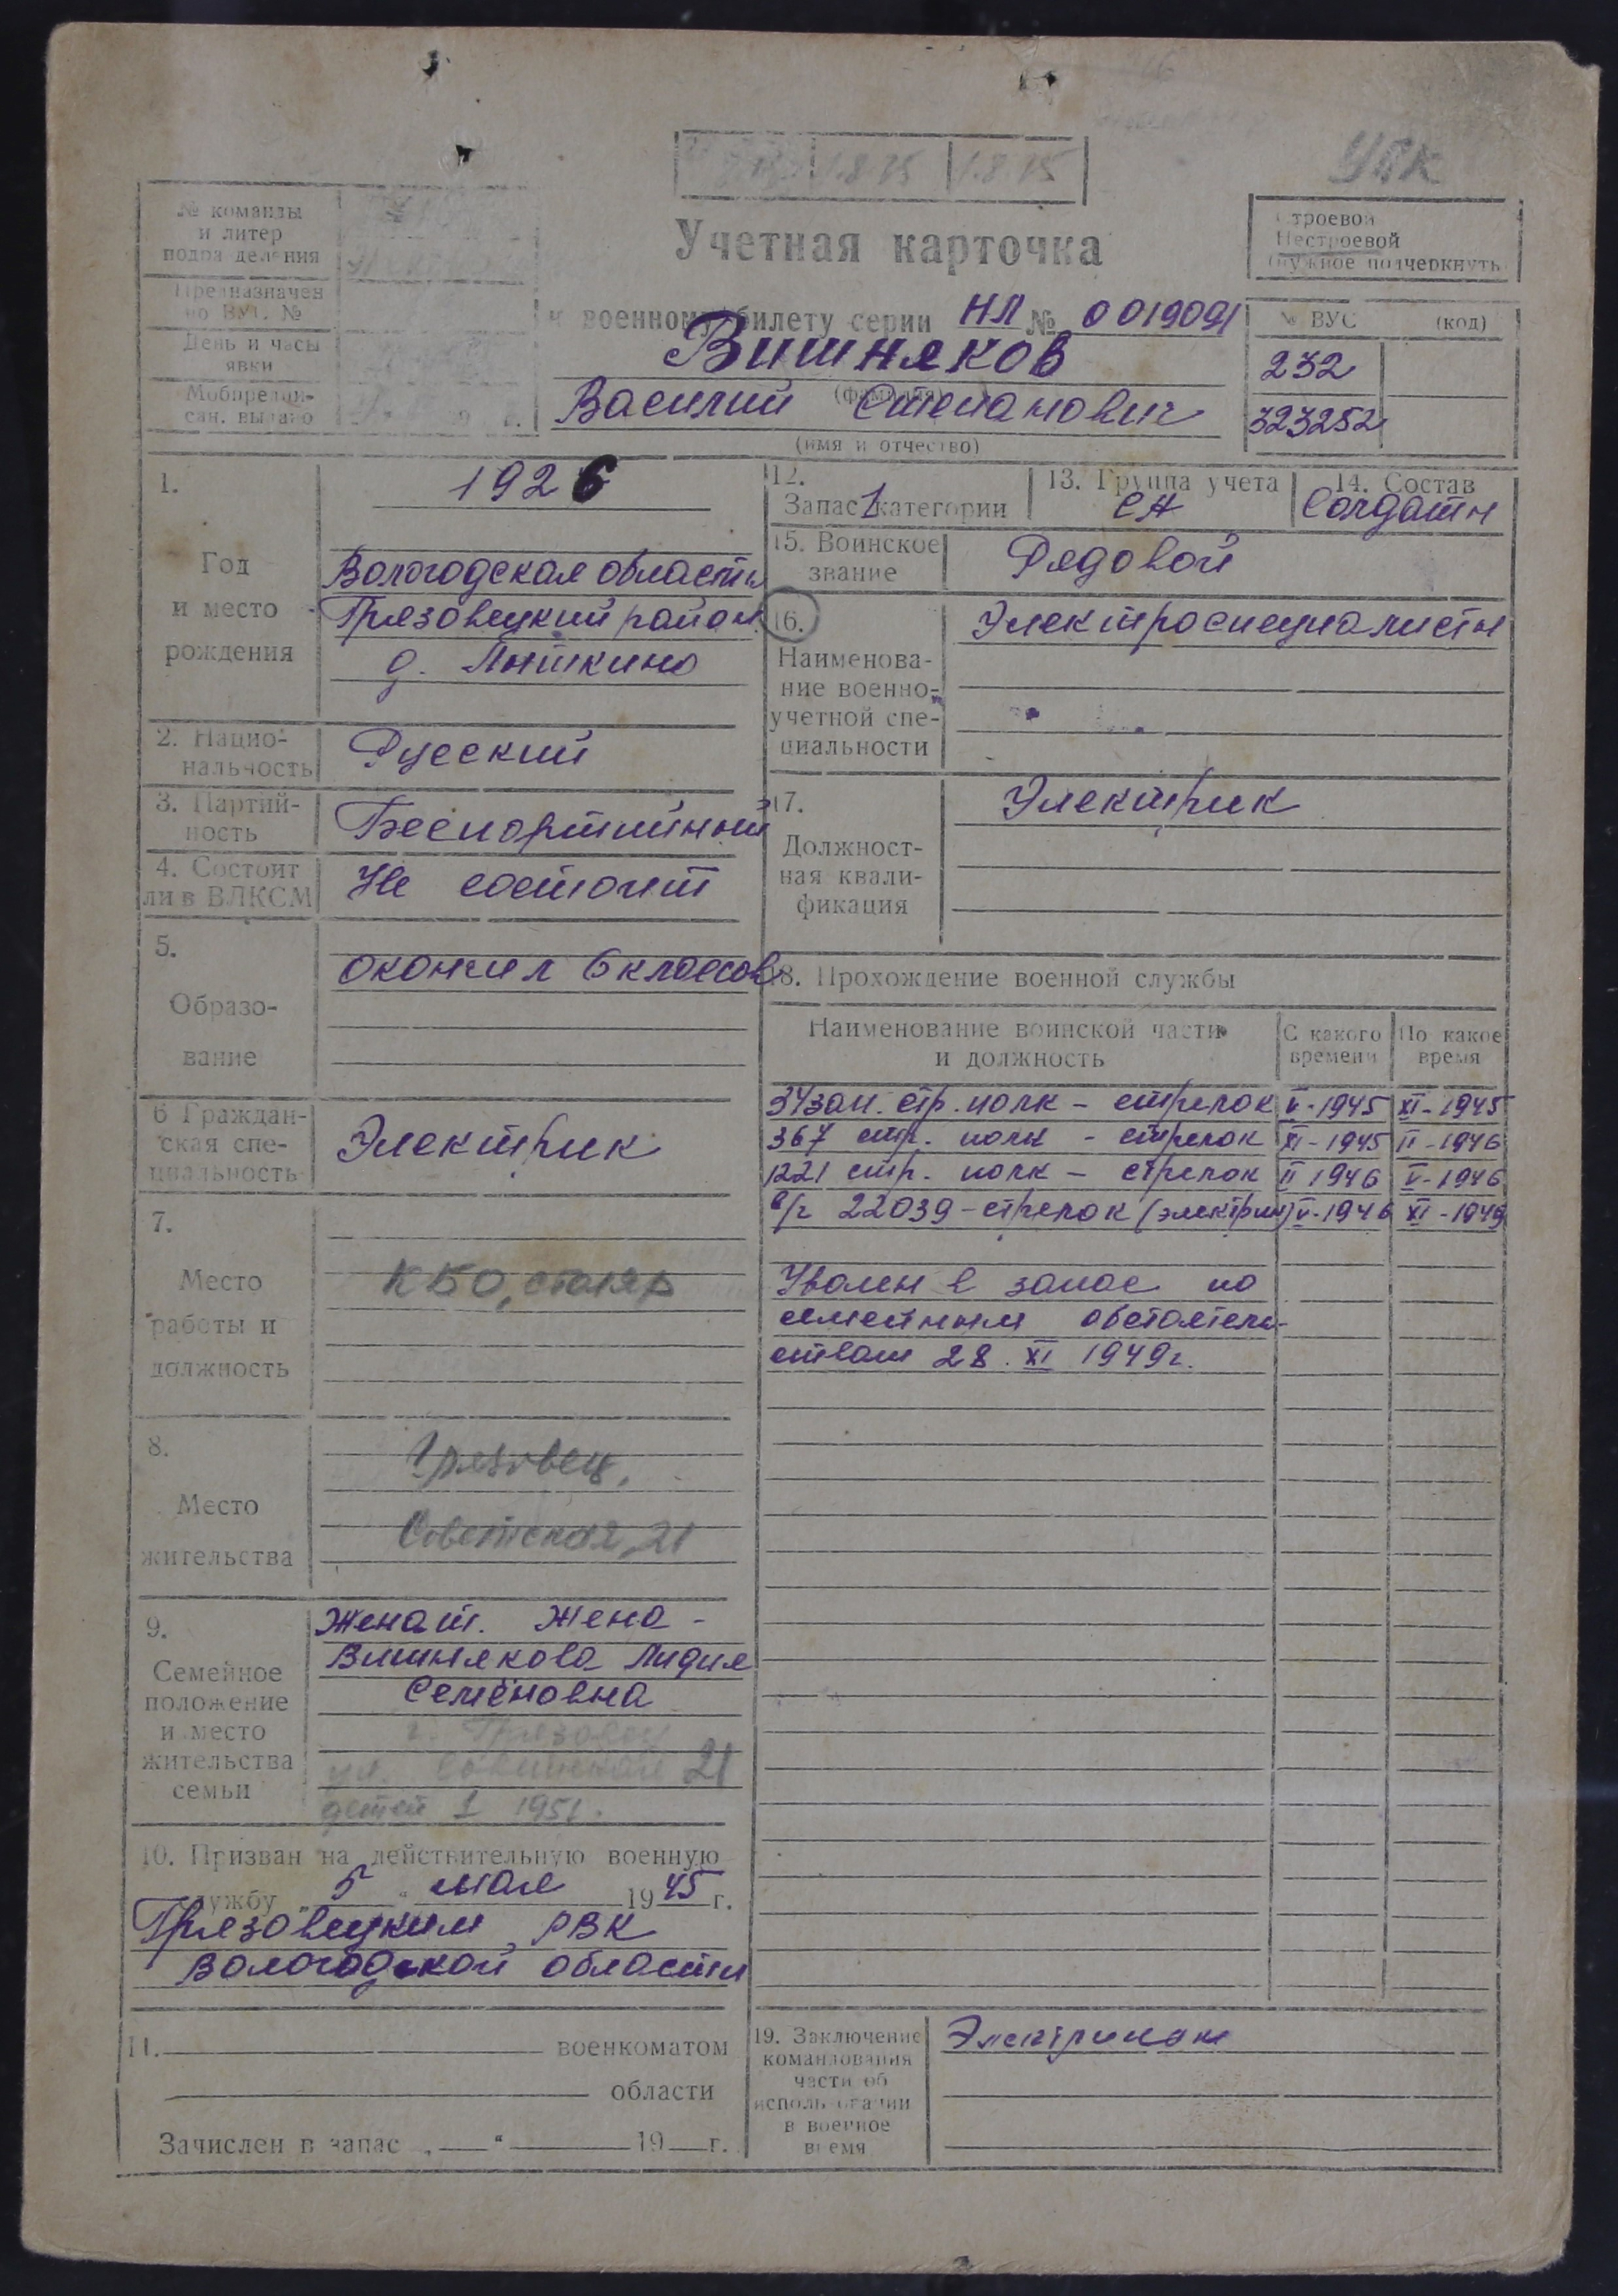 УПК
1.8.75
Учетная карточка
к военному билету серии НЛ № 0019091
Вишняков
(фамилия)
Василий Степанович
(имя и отчество)
№ команды
и литер
подразделения
Предназначен
по ВУС №
День и часы
явки
Мобпредпи-
сан. выдано
Строевой
Нестроевой
(нужное подчеркнуть)
№ ВУС (код)
232
323252
1.
Год
и место
рождения
1926
Вологодская область
Грязовецкий район
2. Нацио-
нальность
Русский
3. Партий-
ность
Беспартийный
4. Состоит
ли в ВЛКСМ
Не состоит
5.
Образо-
вание
окончил 6 классов
6 Граждан-
ская спе-
циальность
Электрик
7.
Место
работы и
должность
КБО, столяр
8.
Место
жительства
Грязовец,
Советская, 21
9.
Семейное
положение
и место
жительства
семьи
Женат. Жена -
Вишнякова Лидия
Семёновна
г. Грязовец
ул. Советская 21
детей 1 1951.
10. Призван на действительную военную
службу „5" мая 1945 г.
Грязовецким РВК
Вологодской области
11. военкоматом
области
Зачислен в запас „ " 19 г.
12.
Запас 1 категории
13. Группа учета
СА
14. Состав
Солдаты
15. Воинское
звание
Рядовой
16.
Наименова-
ние военно-
учетной спе-
циальности
Электроспециалисты
17.
Должност-
ная квали-
фикация
Электрик
18. Прохождение военной службы
Наименование воинской части
и должность
С какого
времени
По какое
время
34 зап. стр. полк - стрелок V-1945 XI-1945
367 стр. полк - стрелок XI-1945 II-1946
1221 стр. полк - стрелок II 1946 V-1946
в/ч 22039 - стрелок (электрик) V-1946 XI-1949
Уволен в запас по
семейным обстоятель-
ствам 28. XI 1949г.
19. Заключение
командования
части об
использовании
в военное
время
Электриком